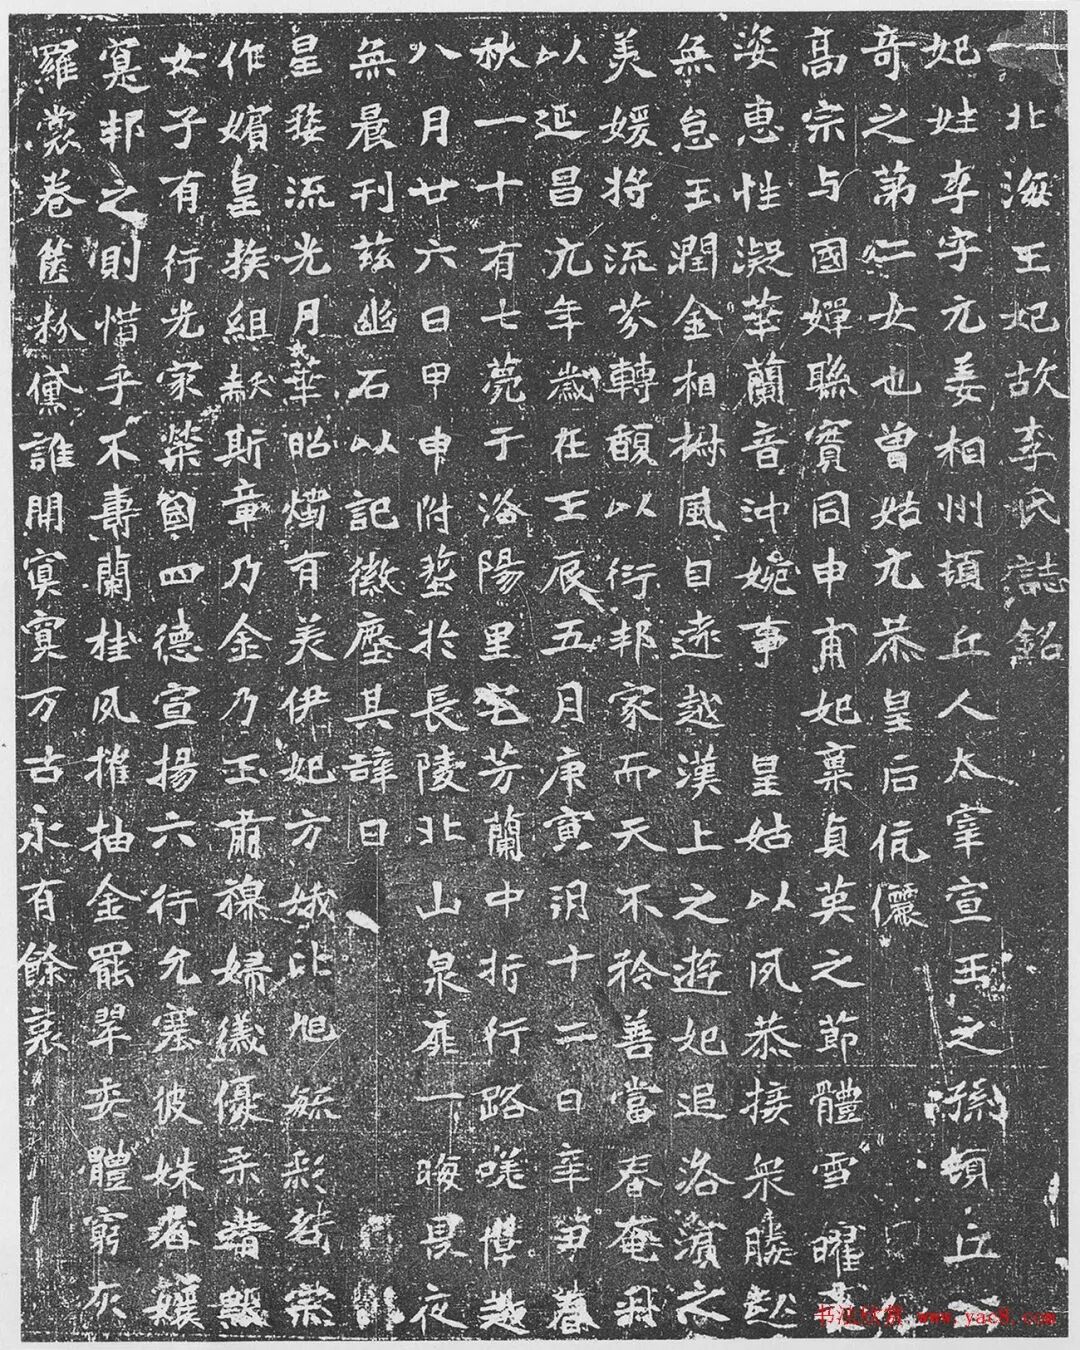 北海王妃故李氏誌銘
妃姓李字元姜相州頓丘人太宰宣王之孫頓丘
奇之第二女也曾姑元恭皇后伉儷
高宗与國嬋聯寔同申甫妃稟貞英之節體雪曜
姿惠性凝華蘭音沖婉事皇姑以夙恭接衆媵
無怠玉潤金相楙風目遠越漢上之遊妃追洛濱之
美媛將流芬轉馥以衍邦家而天不矜善當春奄
以延昌元年歲在壬辰五月庚寅朔十二日辛丑春
秋一十有七薨于洛陽里宅芳蘭中折行路嗟
八月廿六日甲申附塟於長陵北山泉扉一晦畏夜
無晨刊茲幽石以記徽塵其辭曰
皇婺流光月華昭燭有美伊妃方娥比旭毓彩
作嬪皇族組猷斯章乃金乃玉肅穆婦儀優柔
女子有行光家榮國四德宣揚六行允塞彼姝者孃
寔邦之則惜乎不壽蘭桂風摧抽金罷翠奕體窮灰
羅裳卷篋粉黛誰開寘寘万古永有餘哀
书法欣赏 www.yac8.com